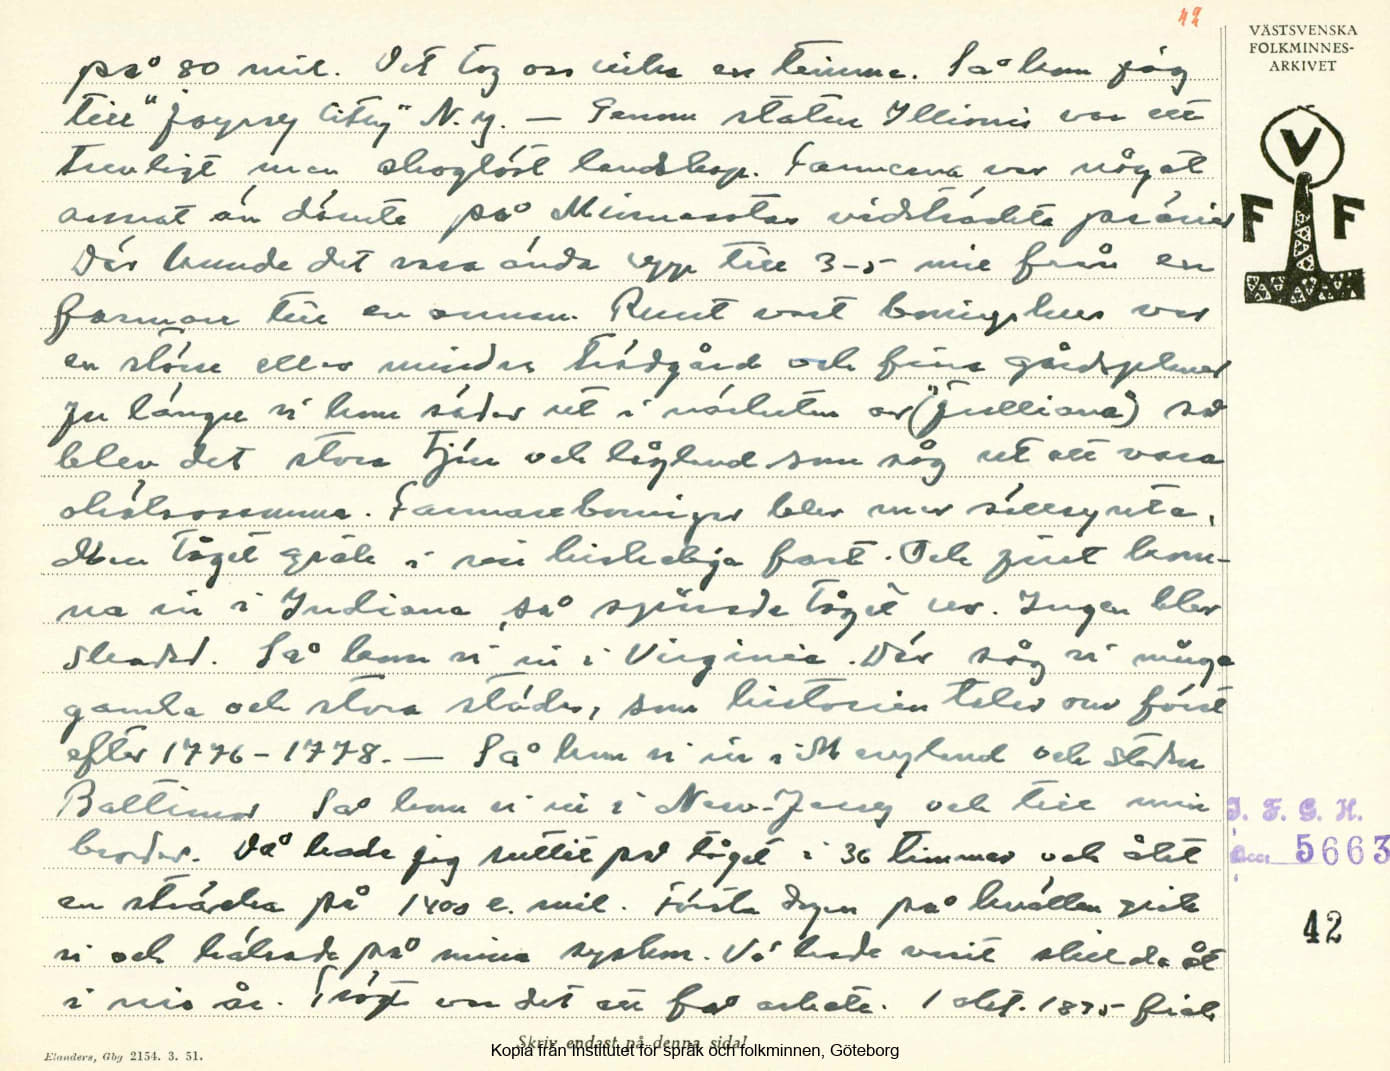 42
VÄSTSVENSKA
FOLKMINNES-
ARKIVET
på 80 mil. Det tog oss cirka en timma. Så kom jag
till "Joyrsy City" N.y. — Genom staten Illionis var ett
trevligt men skoglöst landskap. Farmerna var något
annat än dömta på Minnesotas vidsträckta prärier
Där kunde det vara ända upp till 3-5 mil från en
farmare till en annan. Runt vart boningshus var
en större eller mindre trädgård och fina gårdsplaner
Ju längre vi kom söder ut i närheten av ("Julliana") så
blev det stora tjärn och lågland som såg ut att vara
ohälsosamma. Farmareboningar blev mer sällsynta.
Men tåget gick i sin fart. Och just kom-
na in i Indiana så spårade tåget ur. Ingen blev
skadad. Så kom vi in i Virginia. Där såg vi många
gamla och stora städer, som historien talar om först
efter 1776-1778. — Så kom vi in i Maryland och staden
Baltimor Så kom vi in i New-Jersey och till min
broder. Då hade jag suttit på tåget i 36 timmar och åkt
en sträcka på 1400 e. mil. Första dagen på kvällen gick
vi och hälsade på mina syskon. Vi hade varit skilda åt
i nio år. Trögt var det att få arbete. 1 okt. 1895 fick
V
F F
I. F. G. H.
Acc. 5663
42
Skriv endast på denna sida!
Elanders, Gbg 2154. 3. 51.
Kopia från Institutet för språk och folkminnen, Göteborg